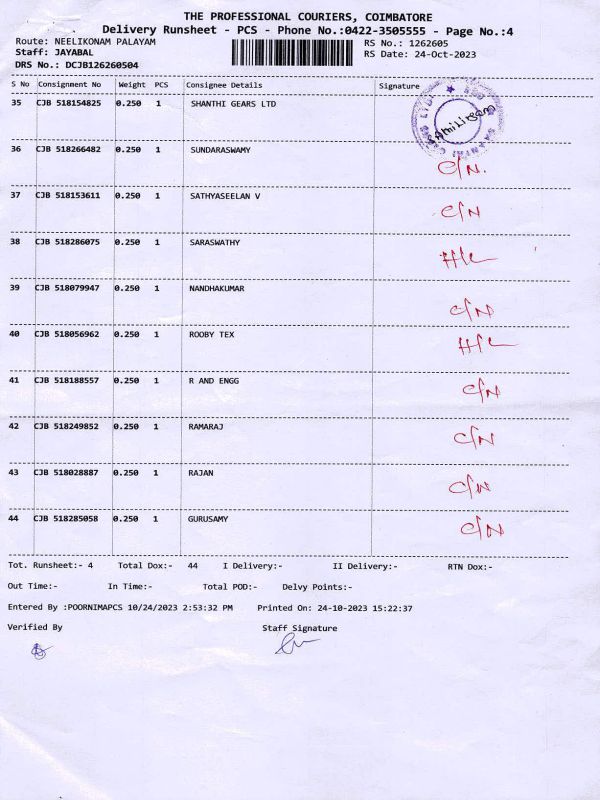 THE PROFESSIONAL COURIERS, COIMBATORE
Delivery Runsheet - PCS - Phone No.:0422-3505555 - Page No.:4
Route: NEELIKONAM PALAYAM RS No.: 1262605
Staff: JAYABAL RS Date: 24-Oct-2023
DRS No.: DCJB126260504
S No Consignment No Weight PCS Consignee Details Signature
35 CJB 518154825 0.250 1 SHANTHI GEARS LTD
36 CJB 518266482 0.250 1 SUNDARASWAMY C/N.
37 CJB 518153611 0.250 1 SATHYASEELAN V C/N
38 CJB 518286075 0.250 1 SARASWATHY
39 CJB 518079947 0.250 1 NANDHAKUMAR C/N
40 CJB 518056962 0.250 1 ROOBY TEX
41 CJB 518188557 0.250 1 R AND ENGG C/N
42 CJB 518249852 0.250 1 RAMARAJ C/N
43 CJB 518028887 0.250 1 RAJAN C/N
44 CJB 518285058 0.250 1 GURUSAMY C/N
Tot. Runsheet:- 4 Total Dox:- 44 I Delivery:- II Delivery:- RTN Dox:-
Out Time:- In Time:- Total POD:- Delvy Points:-
Entered By :POORNIMAPCS 10/24/2023 2:53:32 PM Printed On: 24-10-2023 15:22:37
Verified By Staff Signature